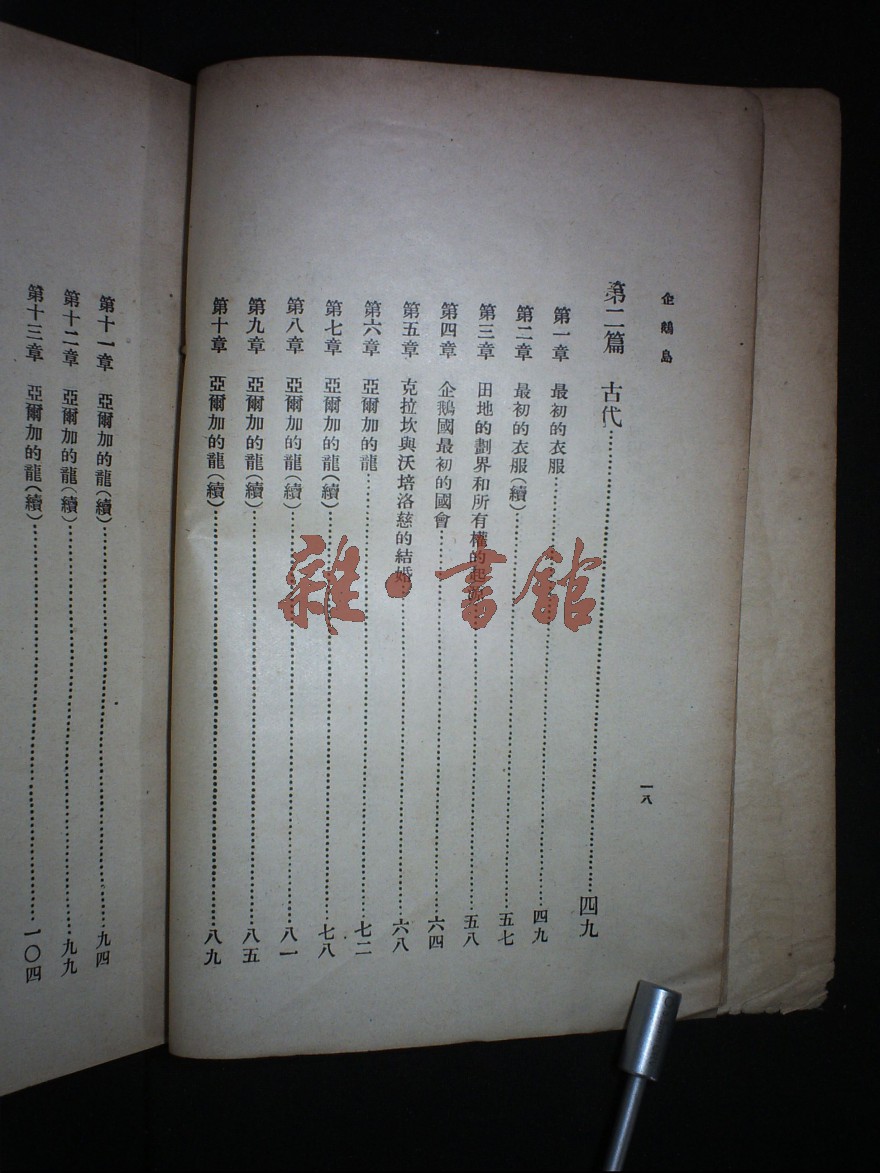 企鵝島
一八
第二篇 古代……四九
第一章 最初的衣服……四九
第二章 最初的衣服(續)……五七
第三章 田地的劃界和所有權的起……五八
第四章 企鵝國最初的國會……六四
第五章 克拉坎與沃培洛慈的結婚……六八
第六章 亞爾加的龍……七二
第七章 亞爾加的龍(續)……七八
第八章 亞爾加的龍(續)……八一
第九章 亞爾加的龍(續)……八五
第十章 亞爾加的龍(續)……八九
第十一章 亞爾加的龍(續)……九四
第十二章 亞爾加的龍(續)……九九
第十三章 亞爾加的龍(續)……一〇四
雜·書館